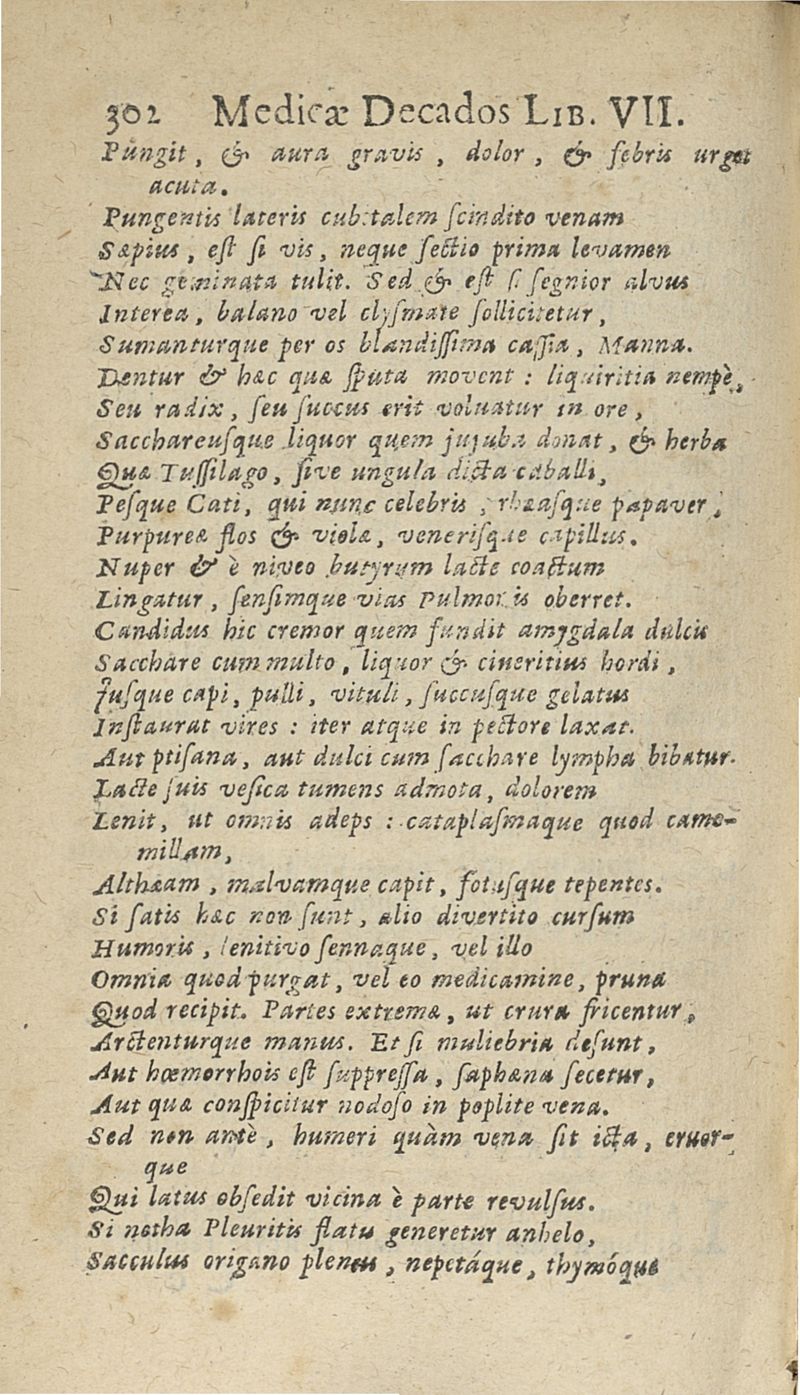 302 Medicæ Decados Lib. VII.
Pungit, & aura gravis, dolor, & febris urget
acuta.
Pungentis lateris cubitalem ſcindito venam
Sæpius, eſt ſi vis, neque ſectio prima levamen
Nec geminata tulit. Sed & eſt ſi ſegnior alvus
Interea, balano vel clyſmate ſollicitetur,
Sumanturque per os blandiſſima caſſia, Manna.
Dentur & hæc quæ ſputa movent: liquiritia nempè,
Seu radix, ſeu ſuccus erit voluatur in ore,
Sacchareuſque liquor quem jujuba donat, & herba
Quæ Tuſſilago, ſive ungula dicta caballi,
Peſque Cati, qui nunc celebris, rhæaſque papaver,
Purpureæ flos & violæ, veneriſque capillus.
Nuper & è niveo butyrum lacte coactum
Lingatur, ſenſimque vias Pulmonis oberret.
Candidus hic cremor quem fundit amygdala dulcis
Sacchare cum multo, liquor & cineritius hordi,
Juſque capi, pulli, vituli, ſuccuſque gelatus
Inſtaurat vires: iter atque in pectore laxat.
Aut ptiſana, aut dulci cum ſacchare lympha bibatur.
Lacte ſuis veſica tumens admota, dolorem
Lenit, ut omnis adeps: cataplaſmaque quod came-
millam,
Althæam, malvamque capit, fotuſque tepentes.
Si ſatis hæc non ſunt, alio divertito curſum
Humoris, lenitivo ſennaque, vel illo
Omnia quod purgat, vel eo medicamine, pruna
Quod recipit. Partes extremæ, ut crura fricentur,
Arctenturque manus. Et ſi muliebria deſunt,
Aut hœmorrhois eſt ſuppreſſa, ſaphæna ſecetur,
Aut quæ conſpicitur nodoſo in poplite vena.
Sed non antè, humeri quàm vena ſit icta, cruor-
que
Qui latus obſedit vicina è parte revulſus.
Si notha Pleuritis flatu generetur anhelo,
Sacculus origano plenus, nepetáque, thymóque